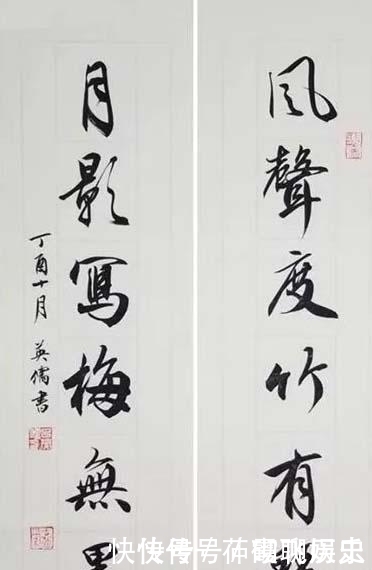 風聲度竹有
月影寫梅無
丁酉十月 英儒書
快传号